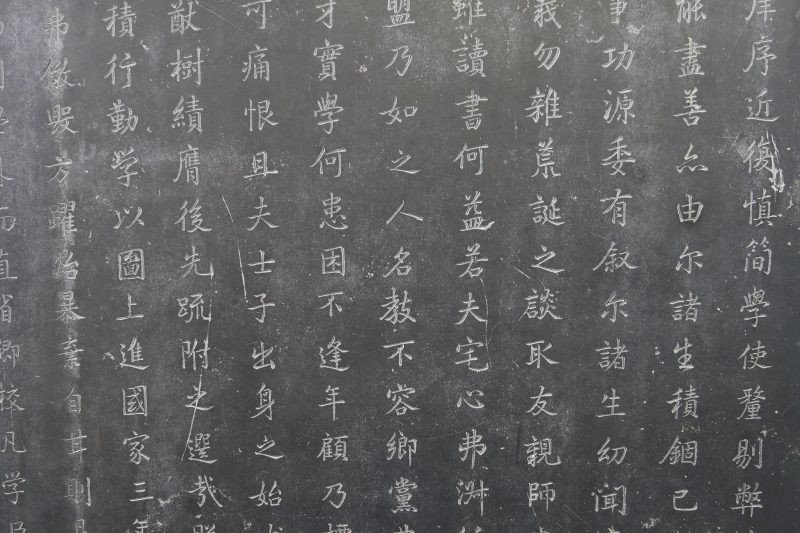 庠序近復慎簡學使釐剔弊
能盡善亦由尔諸生積錮已
事功源委有叙尔諸生幼聞
義勿雜荒誕之談取友親師
雖讀書何益若夫宅心弗淑
盟乃如之人名教不容鄉黨
才實學何患困不逢年顧乃
可痛恨且夫士子出身之始
猷樹績膺後先疏附之選哉
積行勤學以圖上進國家三年
弗儆毁方躍冶暴棄自甘則
而直省鄉校凡学